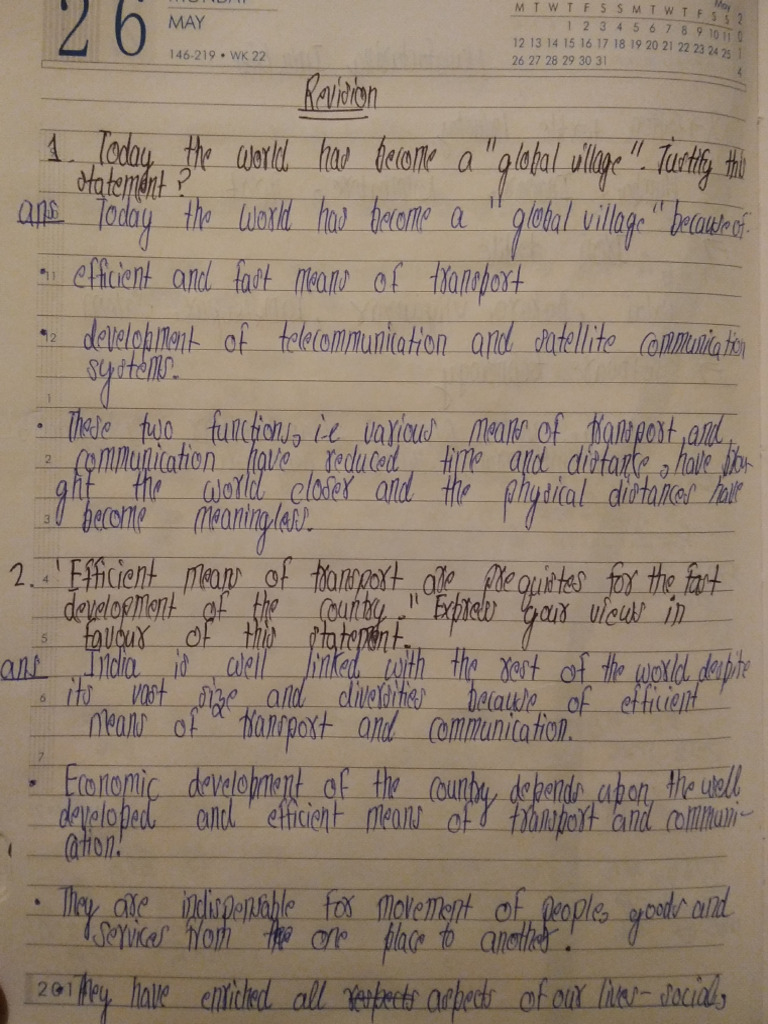 MONDAY
26
MAY
146-219 • WK 22
May
2014
M T W T F S S M T W T F S S
1 2 3 4 5 6 7 8 9 10 11
12 13 14 15 16 17 18 19 20 21 22 23 24 25
26 27 28 29 30 31
Revision
1. Today the world has become a "global village". Justify this
statement?
ans Today the world has become a "global village" because of-
11 • efficient and fast means of transport
12 • development of telecommunication and satellite communication
systems.
1
• These two functions, i.e various means of transport and
2 communication have reduced time and distance, have brou-
ght the world closer and the physical distances have
3 become meaningless.
2. 4 "Efficient means of transport are prequistes for the fast
development of the country." Express your views in
5 favour of this statement.
ans India is well linked with the rest of the world despite
6 its vast size and diversities because of efficient
means of transport and communication.
7
• Economic development of the country depends upon the well
developed and efficient means of transport and communi-
cation.
• They are indispensable for movement of people, goods and
services from the one place to another.
201 • They have enriched all respects aspects of our lives- social,